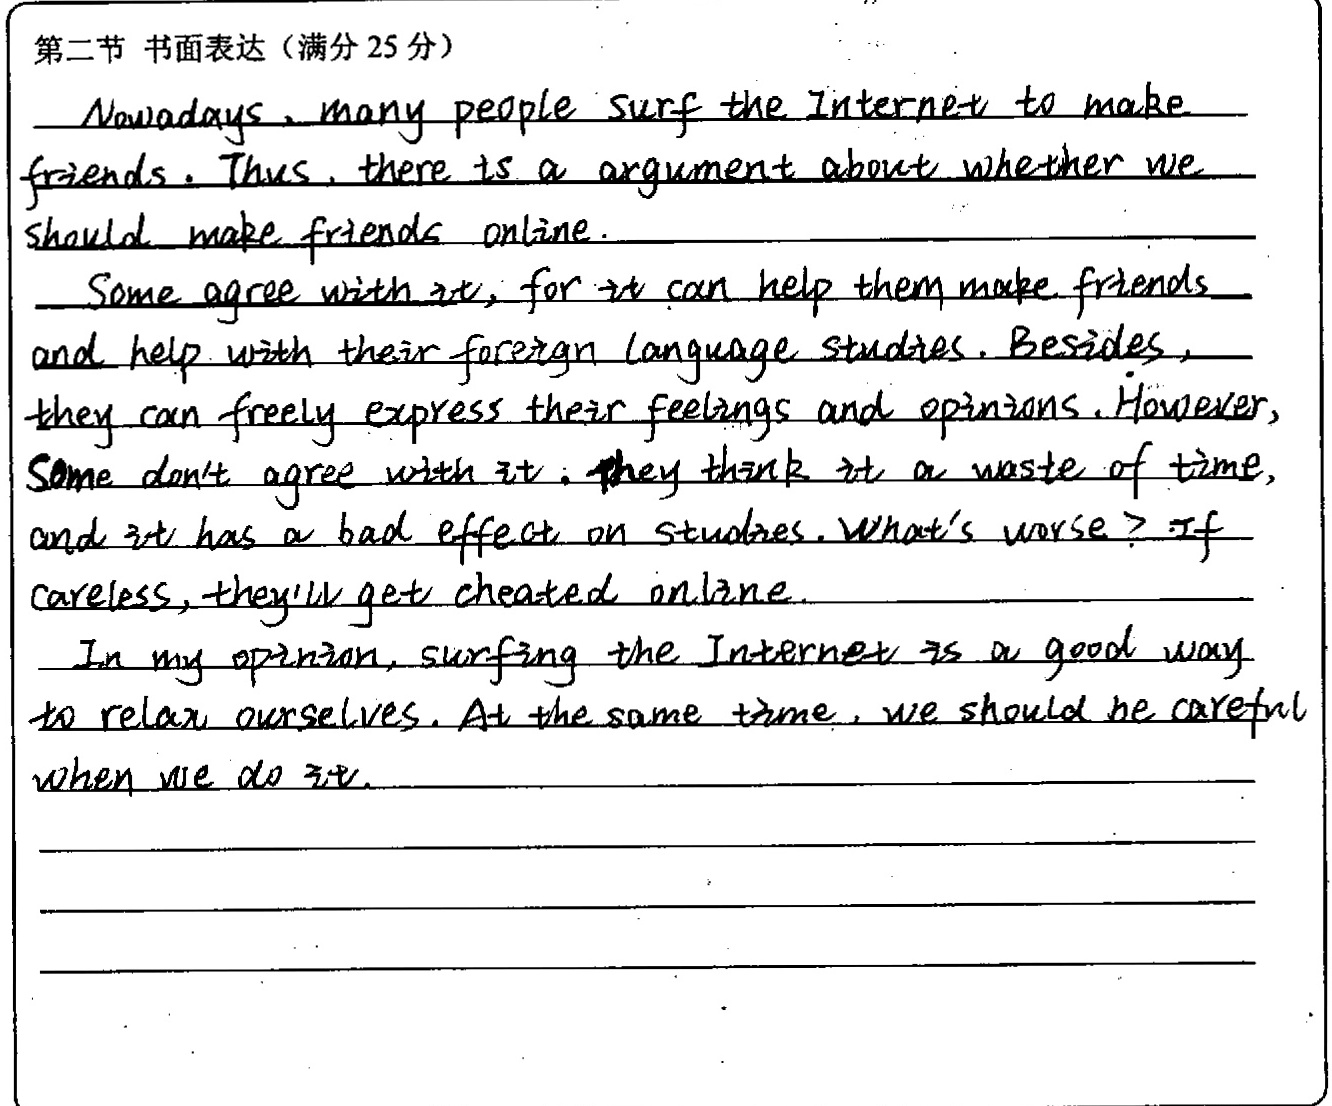 第二节 书面表达（满分 25 分）
Nowadays, many people surf the Internet to make
friends. Thus, there is a argument about whether we
should make friends online.
Some agree with it, for it can help them make friends
and help with their foreign language studies. Besides,
they can freely express their feelings and opinions. However,
Some don't agree with it. They think it a waste of time,
and it has a bad effect on studies. What's worse? If
careless, they'll get cheated online.
In my opinion, surfing the Internet is a good way
to relax ourselves. At the same time, we should be careful
when we do it.